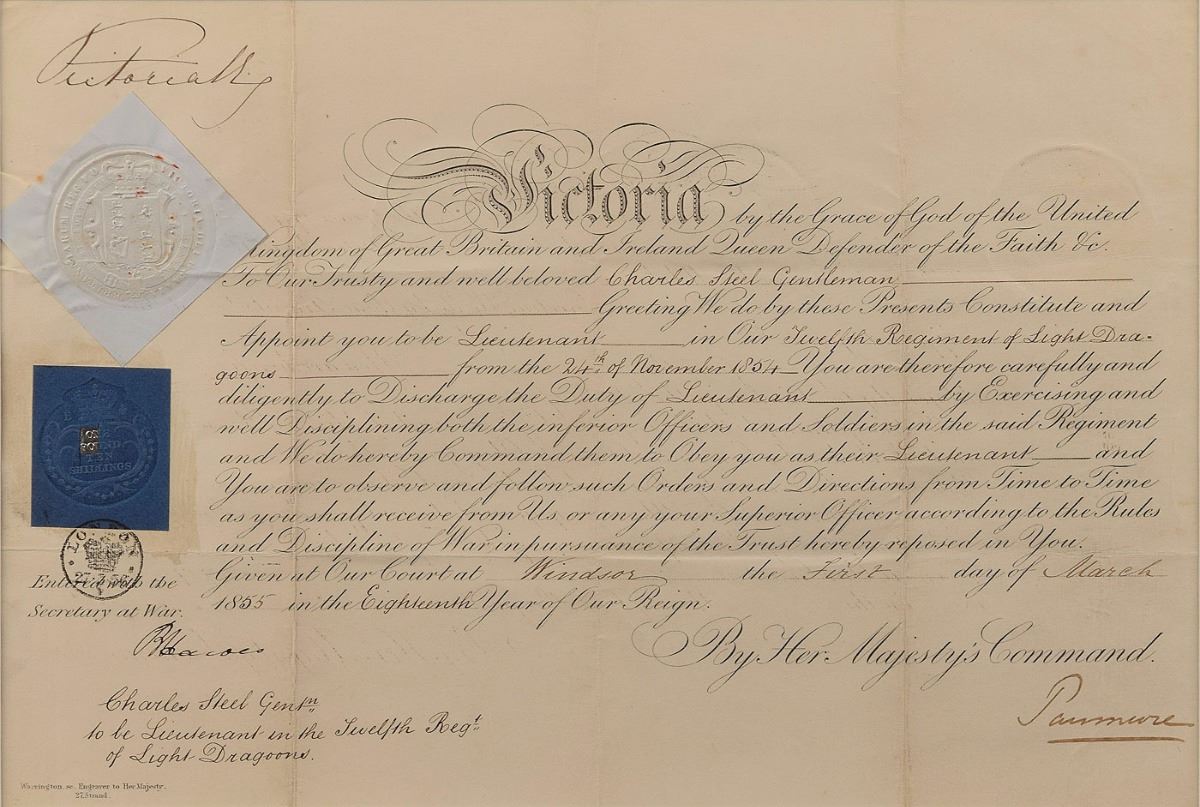 Victoria R
Victoria by the Grace of God of the United
Kingdom of Great Britain and Ireland Queen Defender of the Faith &c.
To Our Trusty and well beloved Charles Steel Gentleman
Greeting We do by these Presents Constitute and
Appoint you to be Lieutenant in Our Twelfth Regiment of Light Dra-
goons from the 24th of November 1854 You are therefore carefully and
diligently to Discharge the Duty of Lieutenant by Exercising and
well Disciplining both the inferior Officers and Soldiers in the said Regiment
and We do hereby Command them to Obey you as their Lieutenant and
You are to observe and follow such Orders and Directions from Time to Time
as you shall receive from Us, or any your Superior Officer according to the Rules
and Discipline of War in pursuance of the Trust hereby reposed in You.
Given at Our Court at Windsor the First day of March
1855 in the Eighteenth Year of Our Reign.
By Her Majesty's Command.
Panmure
TEN
SHILLINGS
LONDON
Entered with the
Secretary at War.
BHawes
Charles Steel Gentn
to be Lieutenant in the Twelfth Regt
of Light Dragoons.
Warrington, sc. Engraver to Her Majesty.
27, Strand.